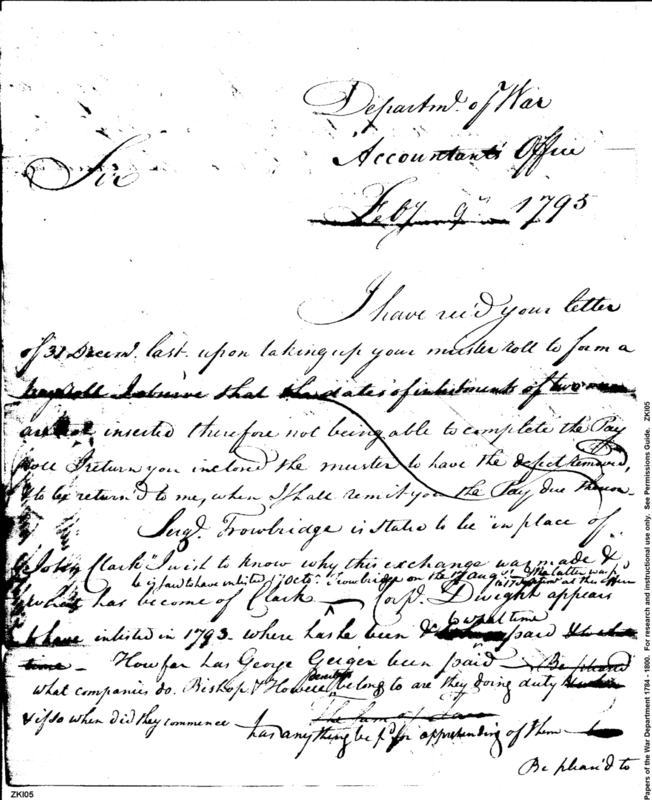 Departmt. of War
Accountants Office
Sir
Feby 9th 1795
I have rec'd your letter
of 31 Decemr. last. upon taking up your muster roll to form a
payroll I observe that the dates of inlistments of two men
are not inserted therefore not being able to complete the Pay
roll I return you inclosed the muster to have the defect removed,
& to be return'd to me, when I shall remit you the Pay due thereon.
Sergt. Trowbridge is stated to be "in place of
John Clark" I wish to know why this exchange was made &
he is said to have enlisted 1st Octr. Trowbridge on the
what has become of Clark Corpl. Dwight appears
to what time
to have inlisted in 1793. where has he been & paid & to what
time - How far has George Geiger been paid Be pleased
what companies do. Bishop & Howell belong to are they doing duty
& if so when did they commence
has anything be pd. for apprehending of them
Be pleas'd to
ZKI05
Papers of the War Department 1784 - 1800. For research and instructional use only. See Permissions Guide. ZKI05